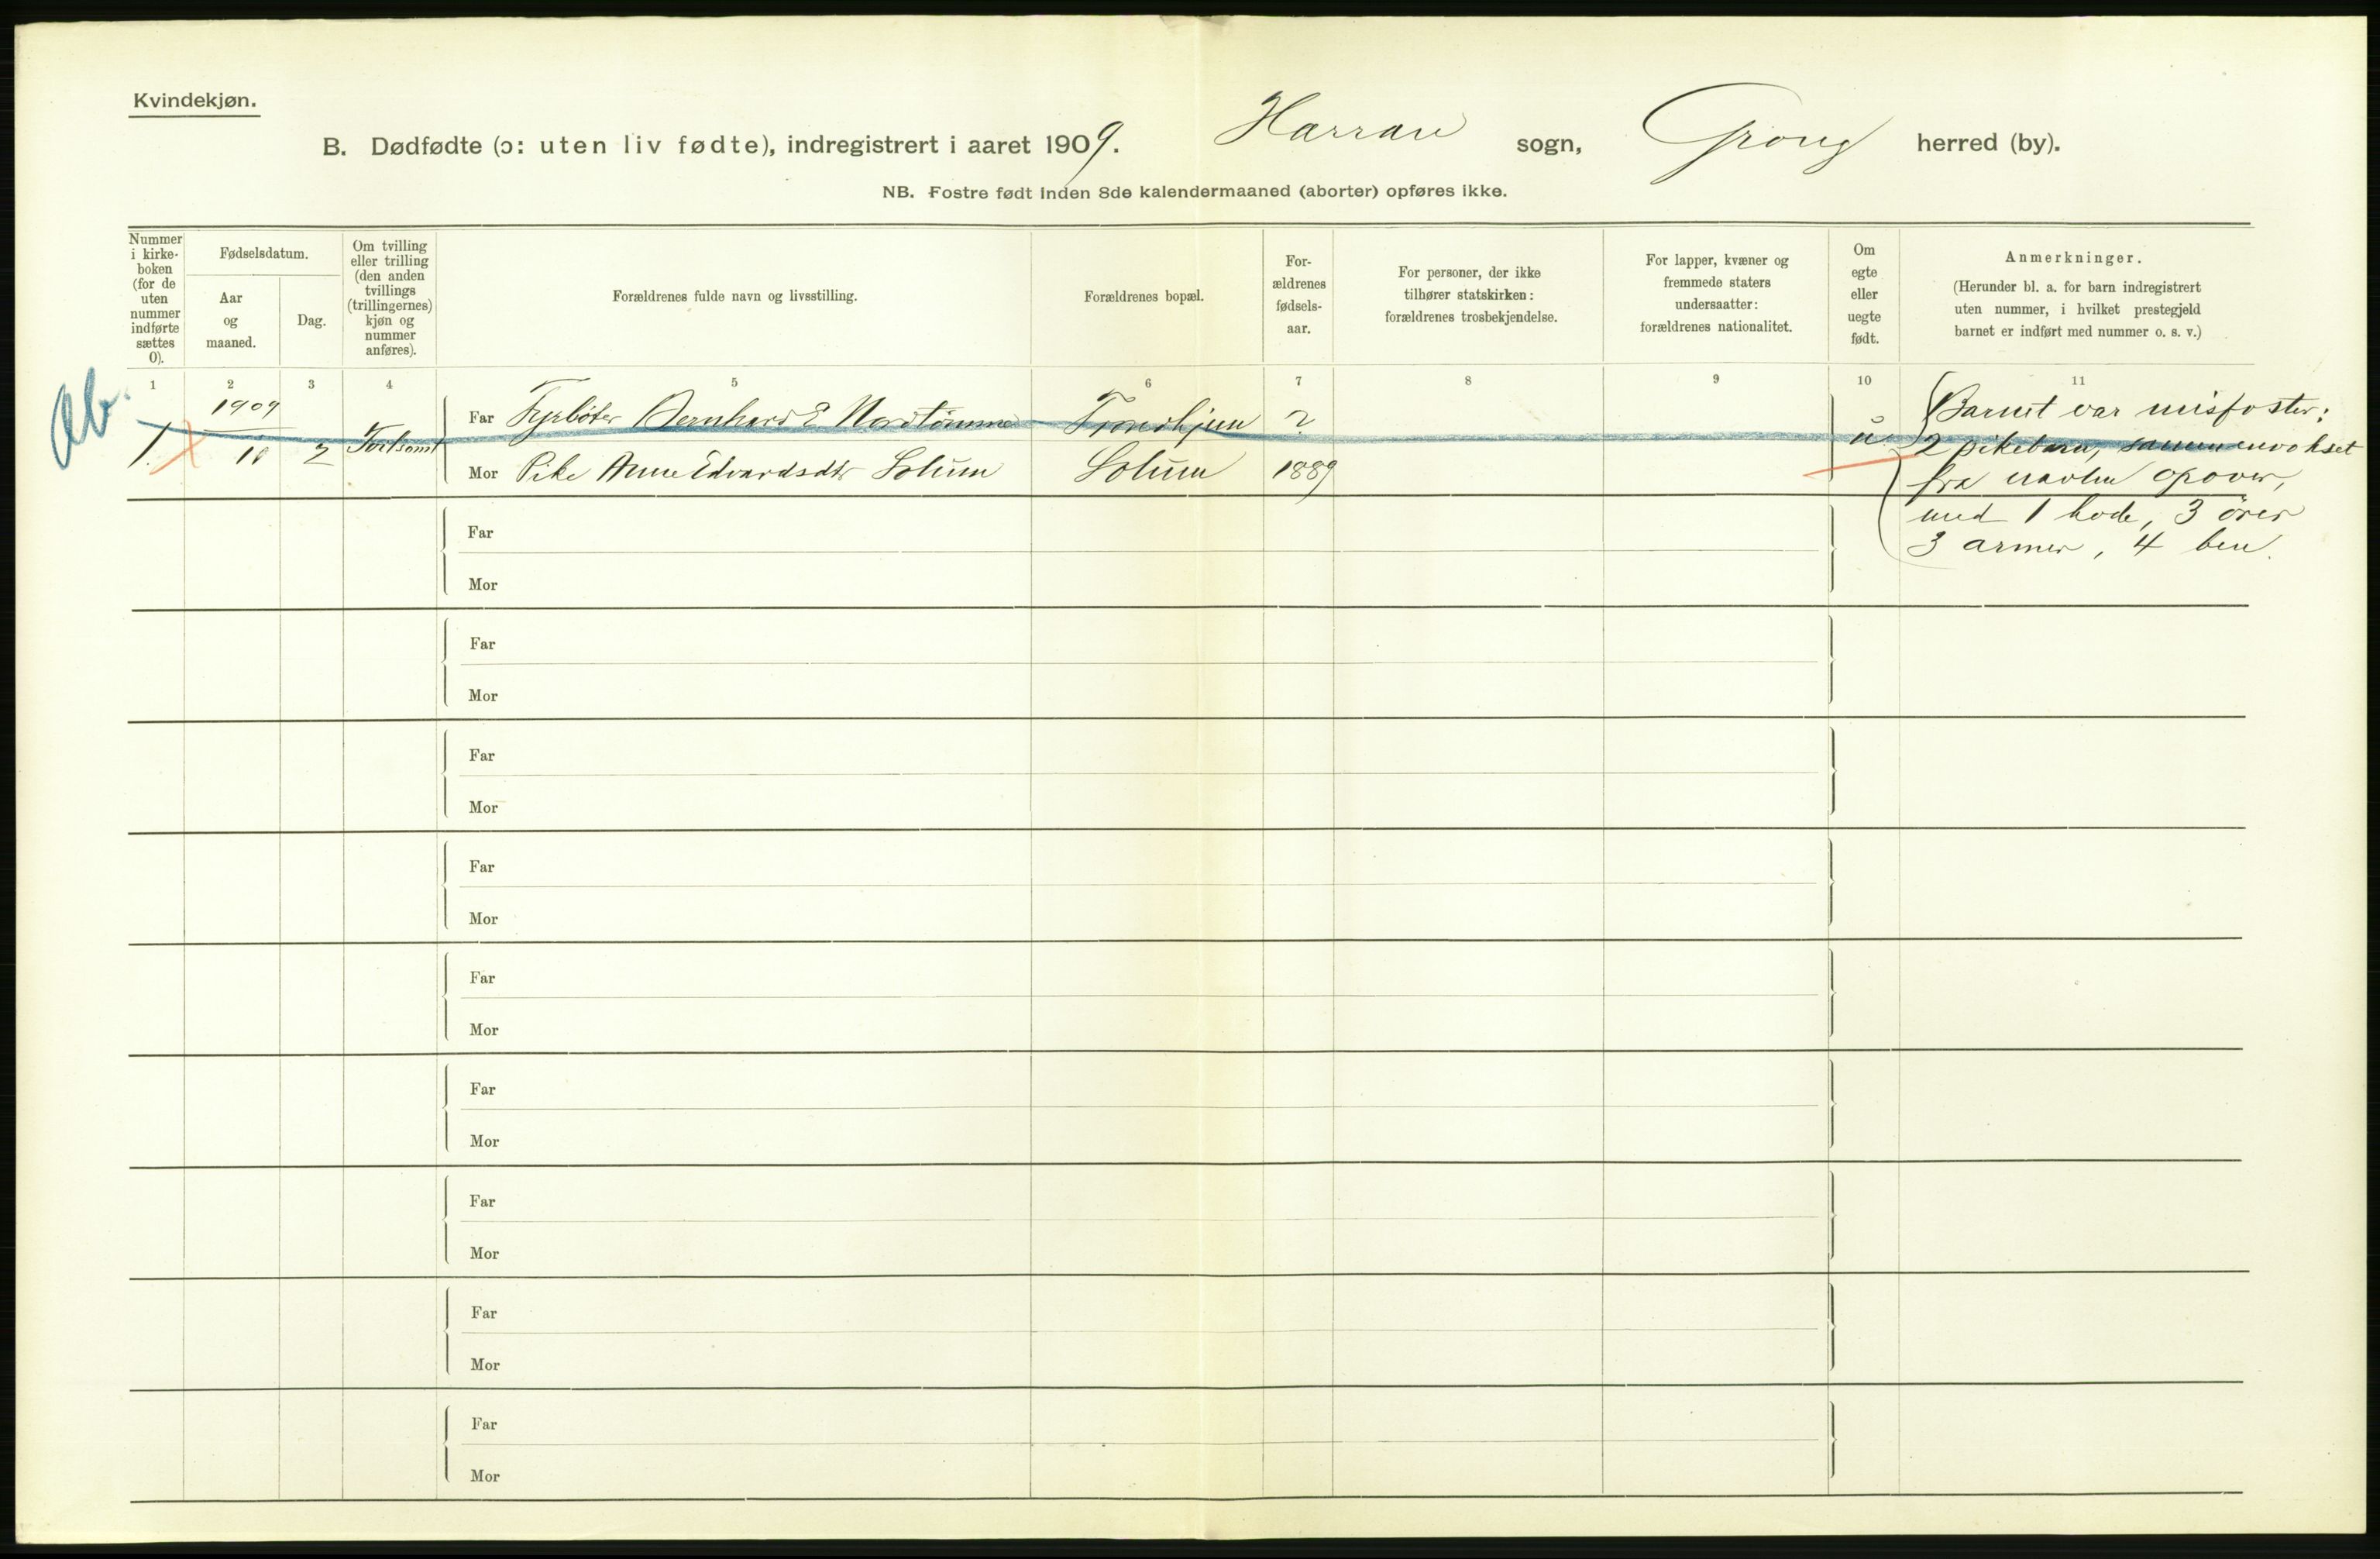 Kvindekjøn.
B. Dødfødte (ɔ: uten liv fødte), indregistrert i aaret 1909. Harran sogn, Grong herred (by).
NB. Fostre født inden 8de kalendermaaned (aborter) opføres ikke.
Nummer
i kirke-
boken
(for de
uten
nummer
indførte
sættes
0).
Fødselsdatum.
Aar
og
maaned.
Dag.
Om tvilling
eller trilling
(den anden
tvillings
(trillingernes)
kjøn og
nummer
anføres).
Forældrenes fulde navn og livsstilling.
Forældrenes bopæl.
For-
ældrenes
fødsels-
aar.
For personer, der ikke
tilhører statskirken:
forældrenes trosbekjendelse.
For lapper, kvæner og
fremmede staters
undersaatter:
forældrenes nationalitet.
Om
egte
eller
uegte
født.
Anmerkninger.
(Herunder bl. a. for barn indregistrert
uten nummer, i hvilket prestegjeld
barnet er indført med nummer o. s. v.)
1 2 3 4 5 6 7 8 9 10 11
Ab.
1.
1909
10
2
Far Fyrbøter Bernhard E Nordtømme Trondhjem ?
Mor Pike Anne Edvardsdtr Solum Solum 1889
u.
Barnet var misfoster:
2 pikebarn, sammenvokset
fra navlen opover,
med 1 hode, 3 ører
3 armer, 4 ben.
Far
Mor
Far
Mor
Far
Mor
Far
Mor
Far
Mor
Far
Mor
Far
Mor
Far
Mor
Far
Mor